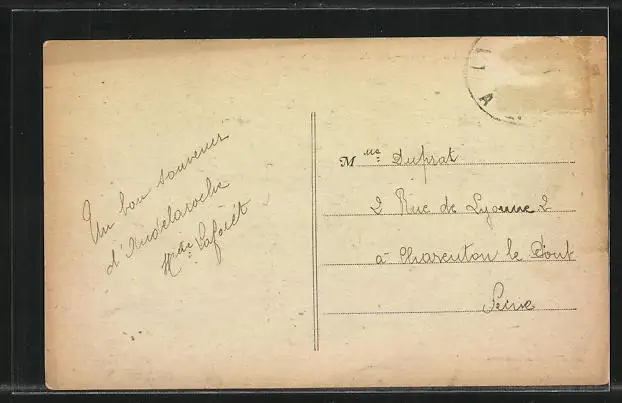 Un bon souvenir
d'Andelaroche
Mme Laforêt
Mlle Duprat
2 Rue de Lyonne 2
à Charenton le Pont
Seine